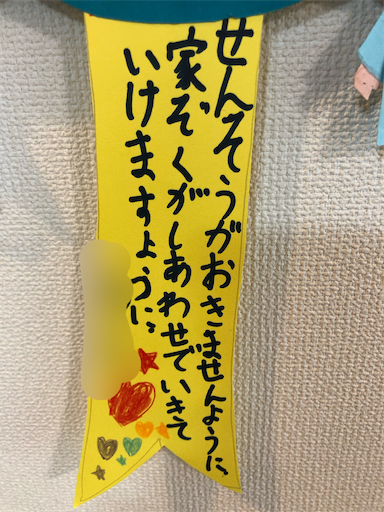 せんそうがおきませんように、
家ぞくがしあわせでいきて
いけますように、